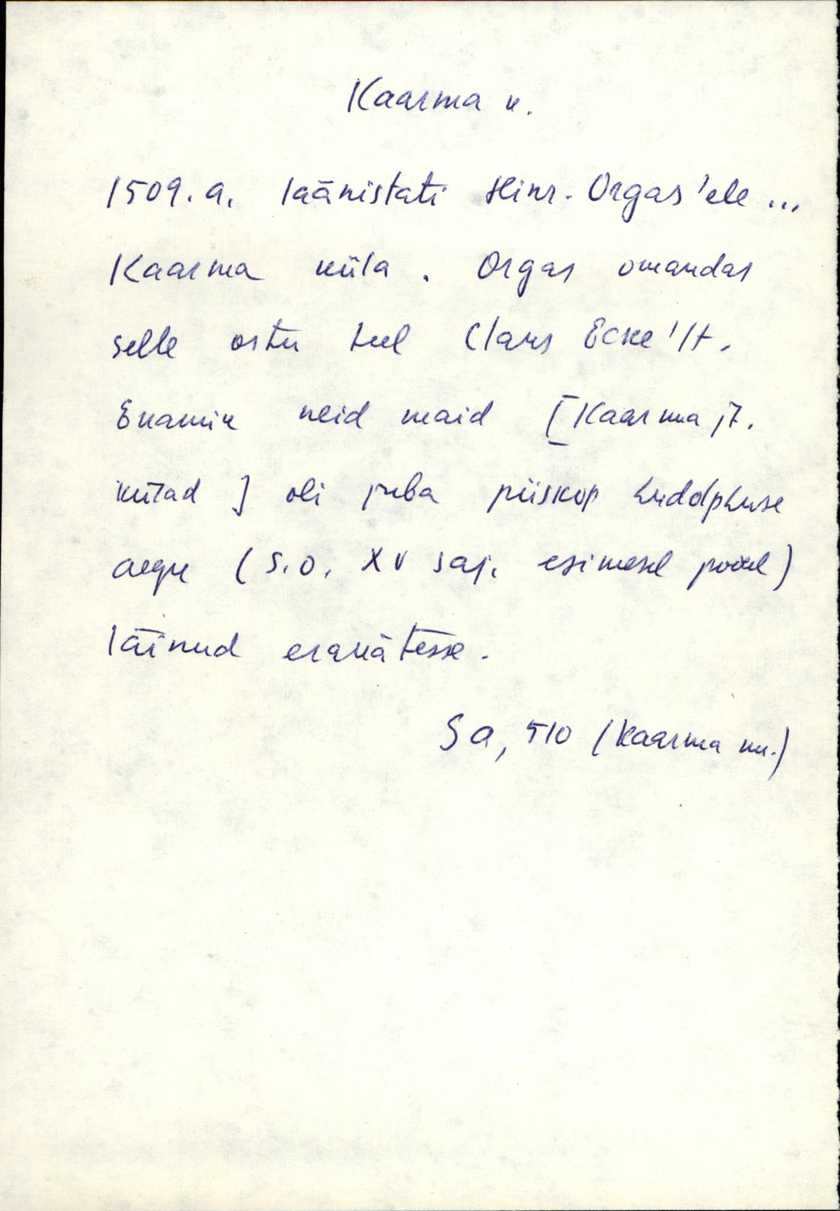 Kaarma k.
1509. a. läänistati Hinr. Orgas'ele ...
Kaarma küla. Orgas omandas
selle ostu teel Claus Ecke'lt.
Enamik neid maid [Kaarma jt.
külad] oli juba piiskop Ludolphuse
aegu (s.o. XV saj. esimesel poolel)
läinud erakätesse.
Sa, 510 (Kaarma mk.)